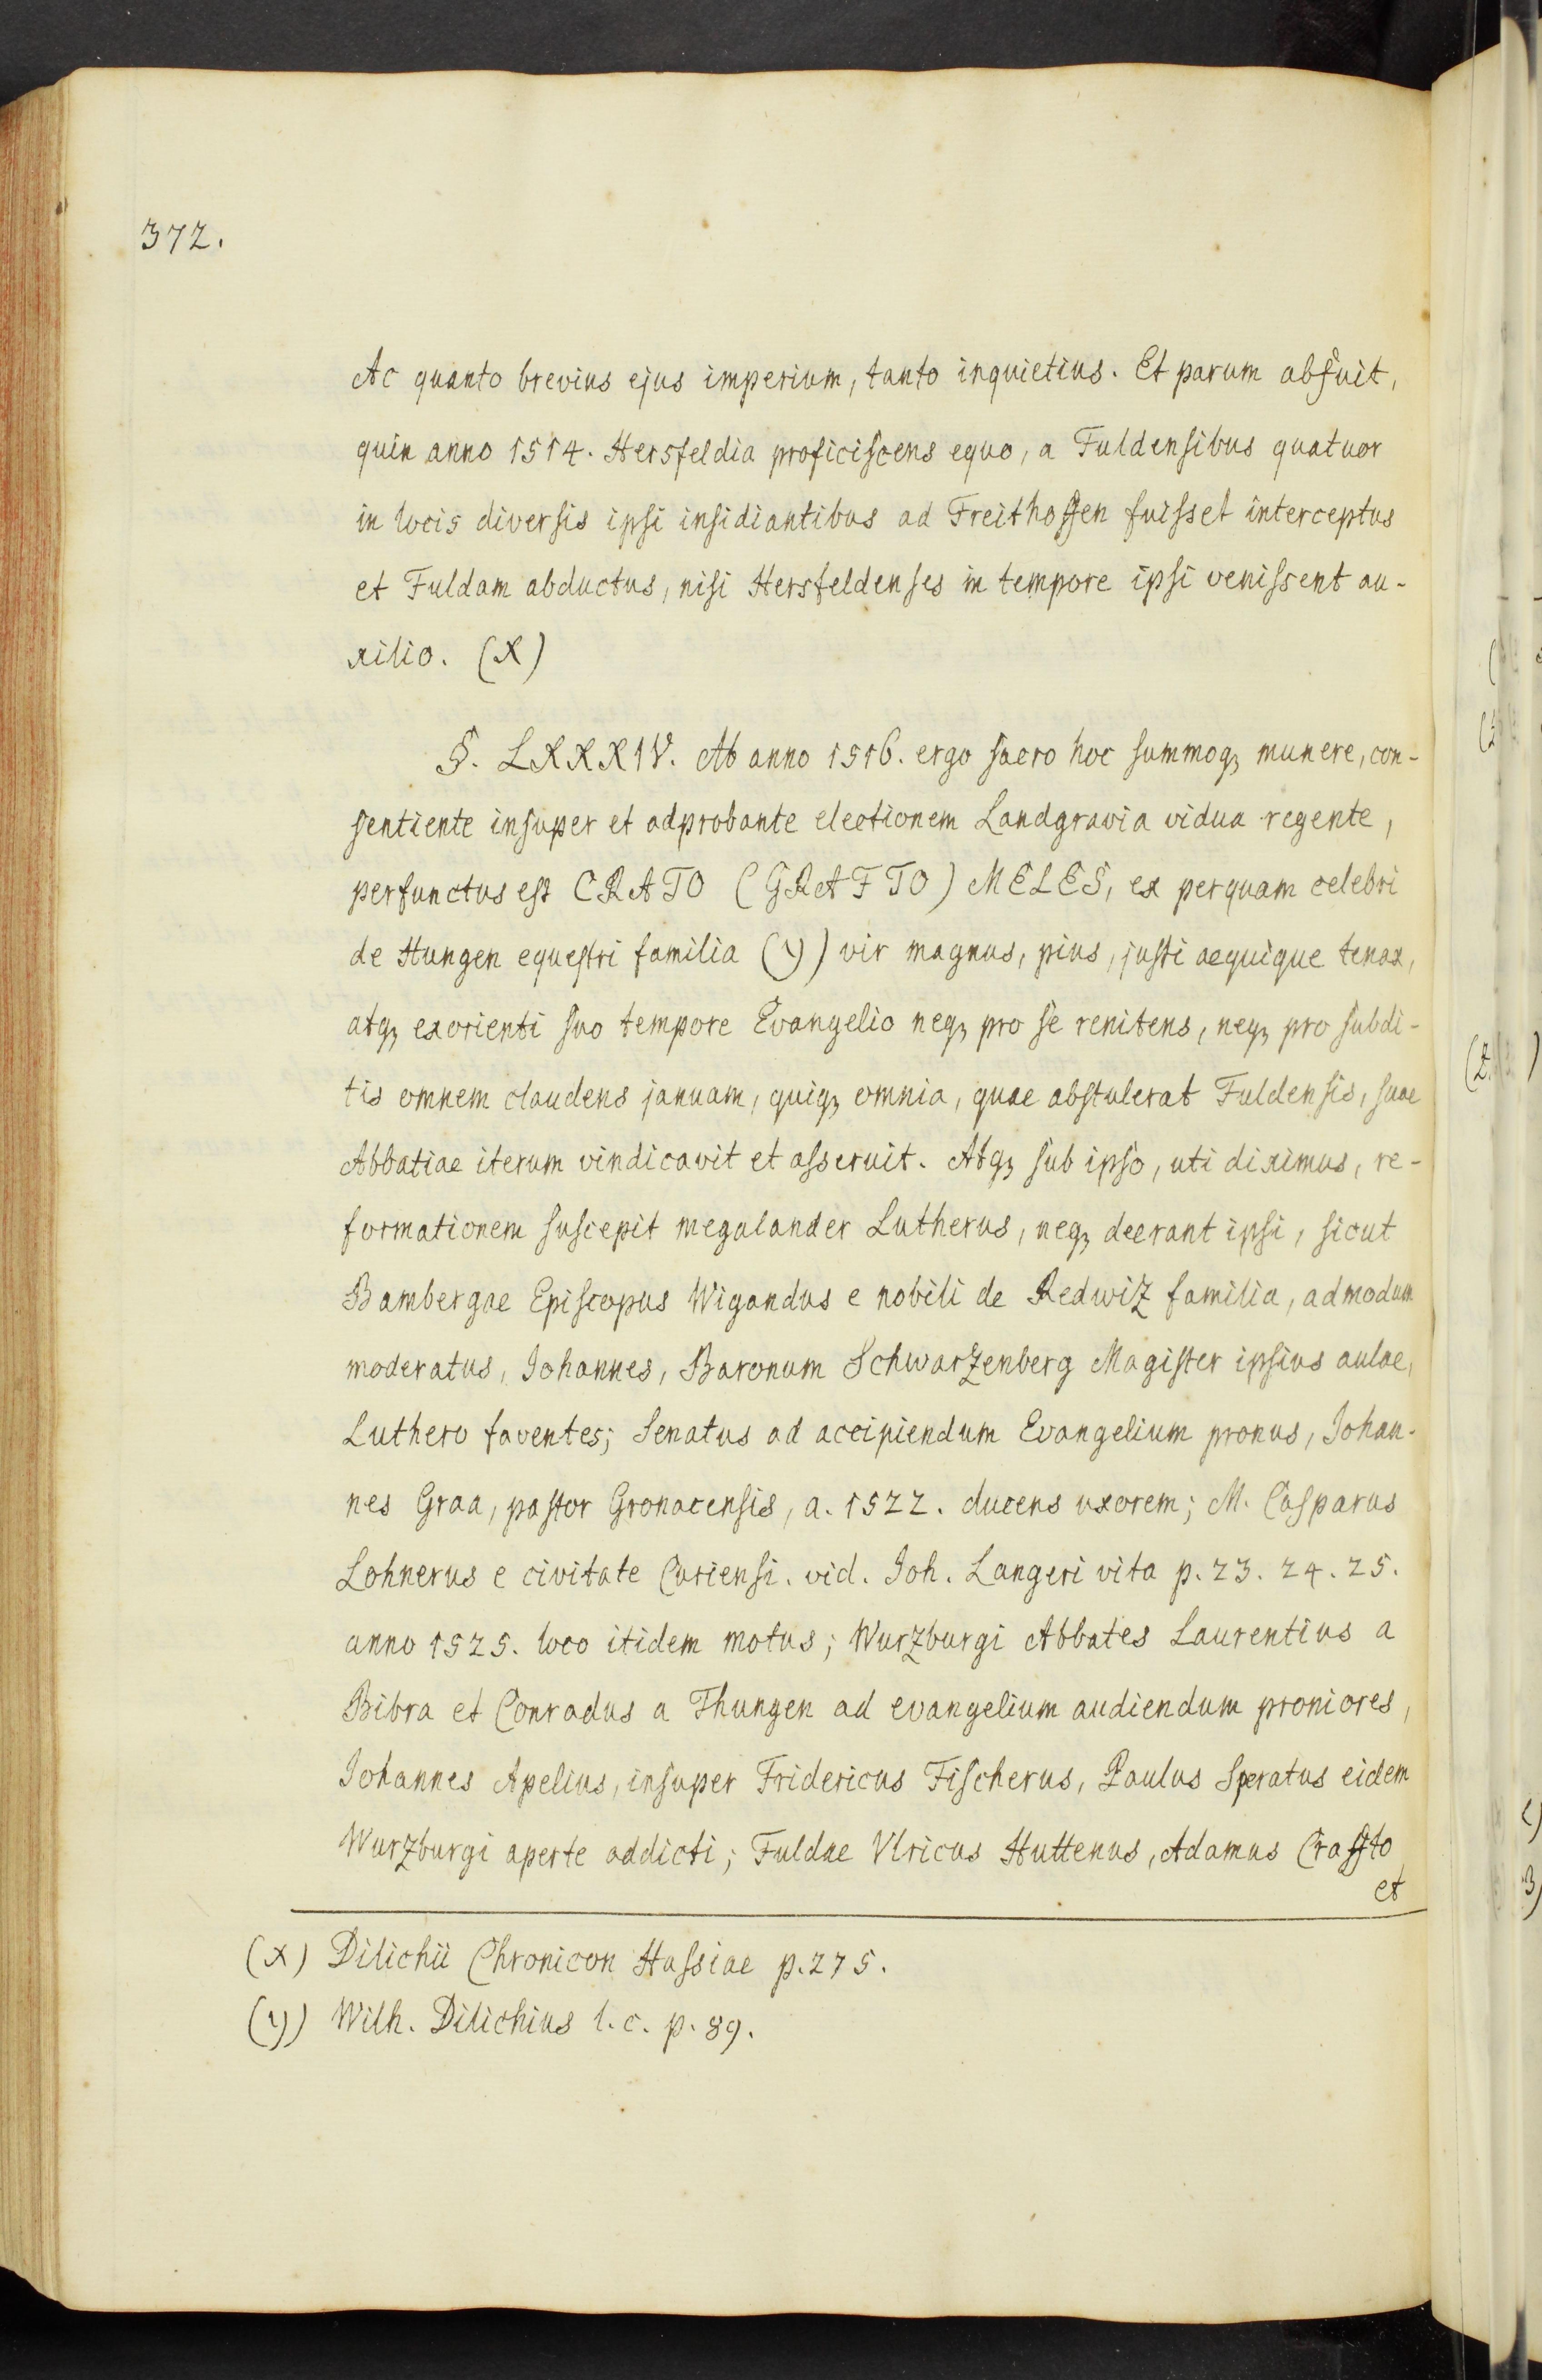 372.
Ac quanto brevius ejus imperium, tanto inquietius. Et parum abfuit,
quin anno 1514. Hersfeldia proficiscens equo, a Fuldensibus quatuor
in locis diversis ipsi insidiantibus ad Freithoffen fuisset interceptus
et Fuldam abductus, nisi Hersfeldenses in tempore ipsi venissent au-
xilio. (X)
§. LXXXIV. Ab anno 1516. ergo sacro hoc summoqꝫ munere, con-
sentiente insuper et adprobante electionem Landgravia vidua regente,
perfunctus est CRATO (GRAFTO) MELES, ex perquam celebri
de Hungen equestri familia (y) vir magnus, pius, justi aequique tenax,
atqꝫ exorienti suo tempore Evangelio neqꝫ pro se renitens, neqꝫ pro subdi-
tis omnem claudens januam, quiqꝫ omnia, quae abstulerat Fuldensis, suae
Abbatiae iterum vindicavit et asseruit. Atqꝫ sub ipso, uti diximus, re-
formationem suscepit megalander Lutherus, neqꝫ deerant ipsi, sicut
Bambergae Episcopus Wigandus e nobili de Redwiz familia, admodum
moderatus, Johannes, Baronum Schwarzenberg Magister ipsius aulae,
Luthero faventes; Senatus ad accipiendum Evangelium pronus, Johan-
nes Graa, pastor Gronacensis, a. 1522. ducens uxorem; M. Casparus
Lohnerus e civitate Curiensi. vid. Joh. Langeri vita p. 23. 24. 25.
anno 1525. loco itidem motus; Wurzburgi Abbates Laurentius a
Bibra et Conradus a Thungen ad evangelium audiendum proniores,
Johannes Apelius, insuper Fridericus Fischerus, Paulus Speratus eidem
Wurzburgi aperte addicti; Fuldae Vlricus Huttenus, Adamus Craffto
et
(X) Dilichii Chronicon Hassiae p. 275.
(y) Wilh. Dilichius l. c. p. 89.